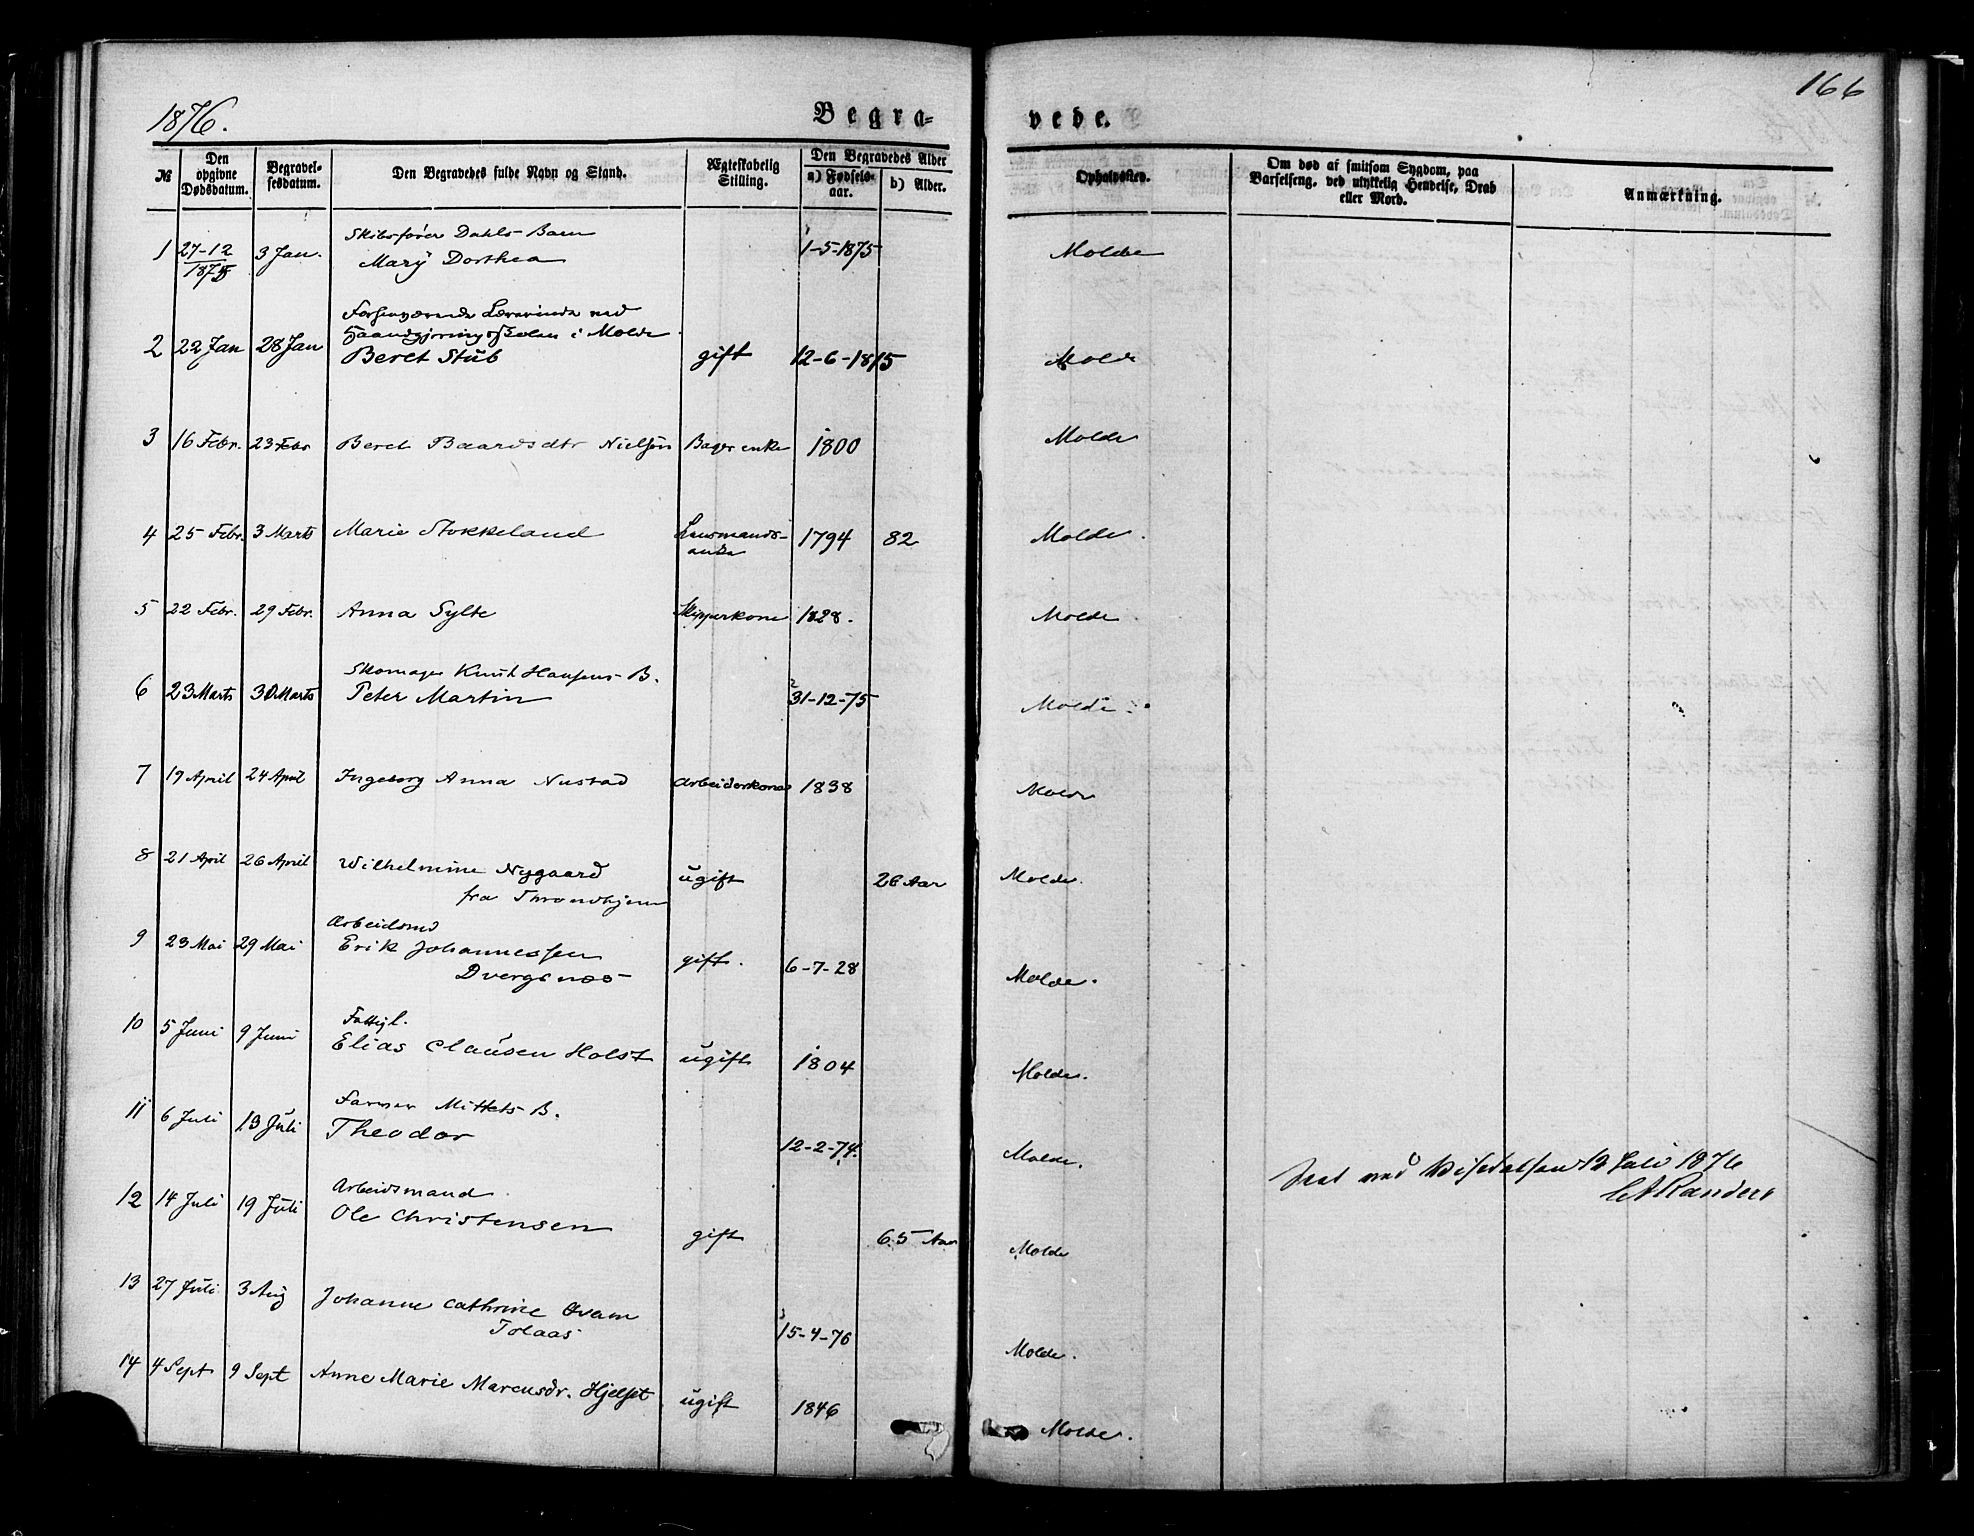 166
1876.
Begra-
vede.
№
Den opgivne Dødsdatum.
Begravelsesdatum.
Den Begravedes fulde Navn og Stand.
Ægteskabelig Stilling.
Den Begravedes Alder
a) Fødselsaar.
b) Alder.
Opholdssted.
Om død af smitsom Sygdom, paa Barselseng, ved ulykkelig Hendelse, Drab eller Mord.
Anmærkning.
Skibsfører Dahls Barn
1 27-12 1875 3 Jan. Mary Dorthea 1-5-1875 Molde
Forhenværende Lærerinde ved
Haandgjerningsskolen i Molde
2 22 Jan 28 Jan Beret Stub gift 12-6-1815 Molde
3 16 Febr. 23 Febr Beret Baardsdtr Nielsen Bager enke 1800 Molde
4 25 Febr. 3 Marts Marie Stokkeland Lensmands- enke 1794 82 Molde.
5 22 Febr. 29 Febr. Anna Sylte Skipperkone 1828. Molde
Skomager Knut Hansens B.
6 23 Marts 30 Marts Peter Martin 31-12-75 Molde
7 19 April 24 April Ingeborg Anna Nustad Arbeiderkone 1838 Molde
8 21 April 26 April Wilhelmine Nygaard ugift 26 Aar Molde.
fra Throndhjem
Arbeidsmd
9 23 Mai 29 Mai Erik Johannessen gift. 6-7-28 Molde.
Dvergsnæs
Fattigl.
10 5 Juni 9 Juni Elias Clausen Holst ugift 1804 Molde.
Farver Mittets B.
11 6 Juli 13 Juli Theodor 12-2-74. Molde.
Seet ved Visitatsen 12 Juli 1876
Randers
Arbeidsmand
12 14 Juli 19 Juli Ole Christensen gift 65 Aar Molde
13 27 Juli 3 Aug Johanne Cathrine Ovam 15-4-76 Molde.
Tolaas
14 4 Sept 9 Sept Anne Marie Marcusdr. Hjelset ugift 1846 Molde.